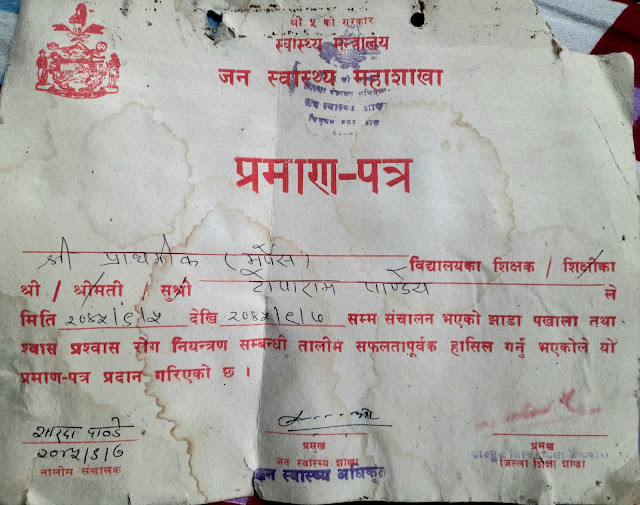 श्री ५ को सरकार
स्वास्थ्य मन्त्रालय
जन स्वास्थ्य महाशाखा
जन स्वास्थ्य शाखा
प्रमाण-पत्र
श्री प्राथमीक विद्यालयका शिक्षक / शिक्षीका
श्री / श्रीमती / सुश्री टोपाराम पाण्डेय ले
मिति २०४५/९/५ देखि २०४५/९/७ सम्म संचालन भएको झाडा पखाला तथा
श्वास प्रश्वास रोग नियन्त्रण सम्बन्धी तालीम सफलतापूर्वक हासिल गर्नु भएकोले यो
प्रमाण-पत्र प्रदान गरिएको छ ।
शारदा पाण्डे
२०४५/९/७
तालीम संचालक
प्रमुख
जन स्वास्थ्य शाखा
जन स्वास्थ्य अधिकृत
प्रमुख
जिल्ला शिक्षा शाखा